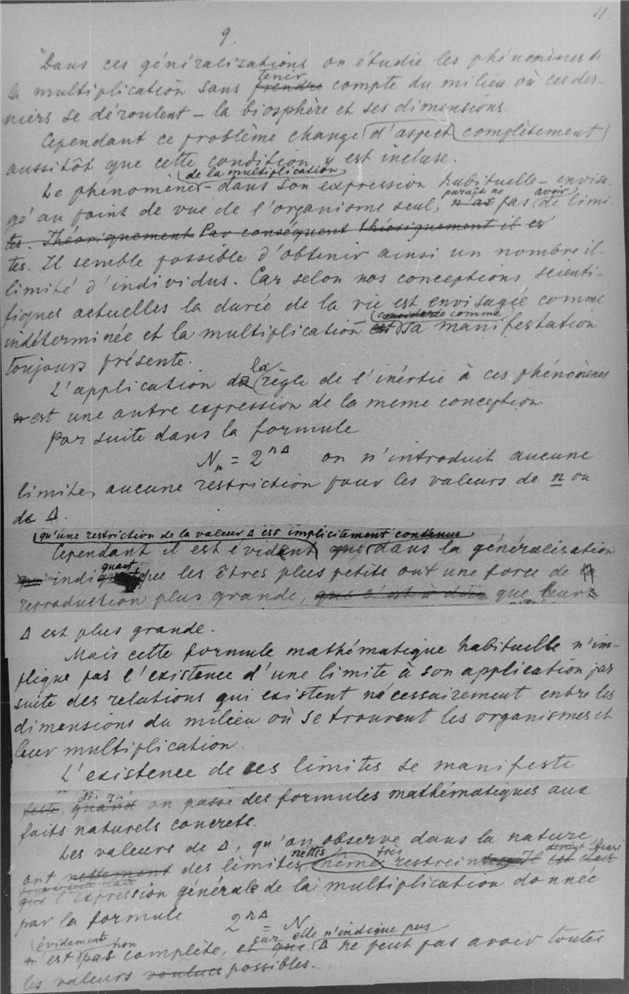 11
9.
Dans ces généralisations on étudie les phénomènes de
la multiplication sans tenir prendre compte du milieu où ces der-
niers se déroulent – la biosphère et ses dimensions.
Cependant ce problème change d'aspect complètement
aussitôt que cette condition y est incluse.
de la multiplication
Le phénomène – dans son expression habituelle – envisa-
gé au point de vue de l'organisme seul, paraît ne pas avoir de limi-
tes. Théoriquement Par conséquent théoriquement il es
tes. Il semble possible d'obtenir ainsi un nombre il-
limité d'individus. Car selon nos conceptions scienti-
fiques actuelles la durée de la vie est envisagée comme
considérée comme
indéterminée et la multiplication est sa manifestation
toujours présente.
L'application de la règle de l'inertie à ces phénomènes
est une autre expression de la meme conception
Par suite dans la formule
Nn = 2^nΔ on n'introduit aucune
limite, aucune restriction pour les valeurs de n ou
de Δ.
qu'une restriction de la valeur Δ est implicitement contenue
Cependant il est évident que dans la généralisation
indiquant que les êtres plus petits ont une force de
reproduction plus grande, que c'est à dire que leur
Δ est plus grande.
Mais cette formule mathématique habituelle n'im-
plique pas l'existence d'une limite à son application par
suite des relations qui existent nécessairement entre les
dimensions du milieu où se trouvent les organismes et
leur multiplication.
L'existence de ces limites se manifeste
dès qu'
quand on passe des formules mathématiques aux
faits naturels concrets.
Les valeurs de Δ, qu'on observe dans la nature
nettes très
ont nettement des limites, même restreintes Il est clair
que l'expression générale de la multiplication donnée
par la formule 2^nΔ = N
évidemment non car elle n'indique pas
n'est pas complète, et que Δ ne peut pas avoir toutes
les valeurs voulues possibles.